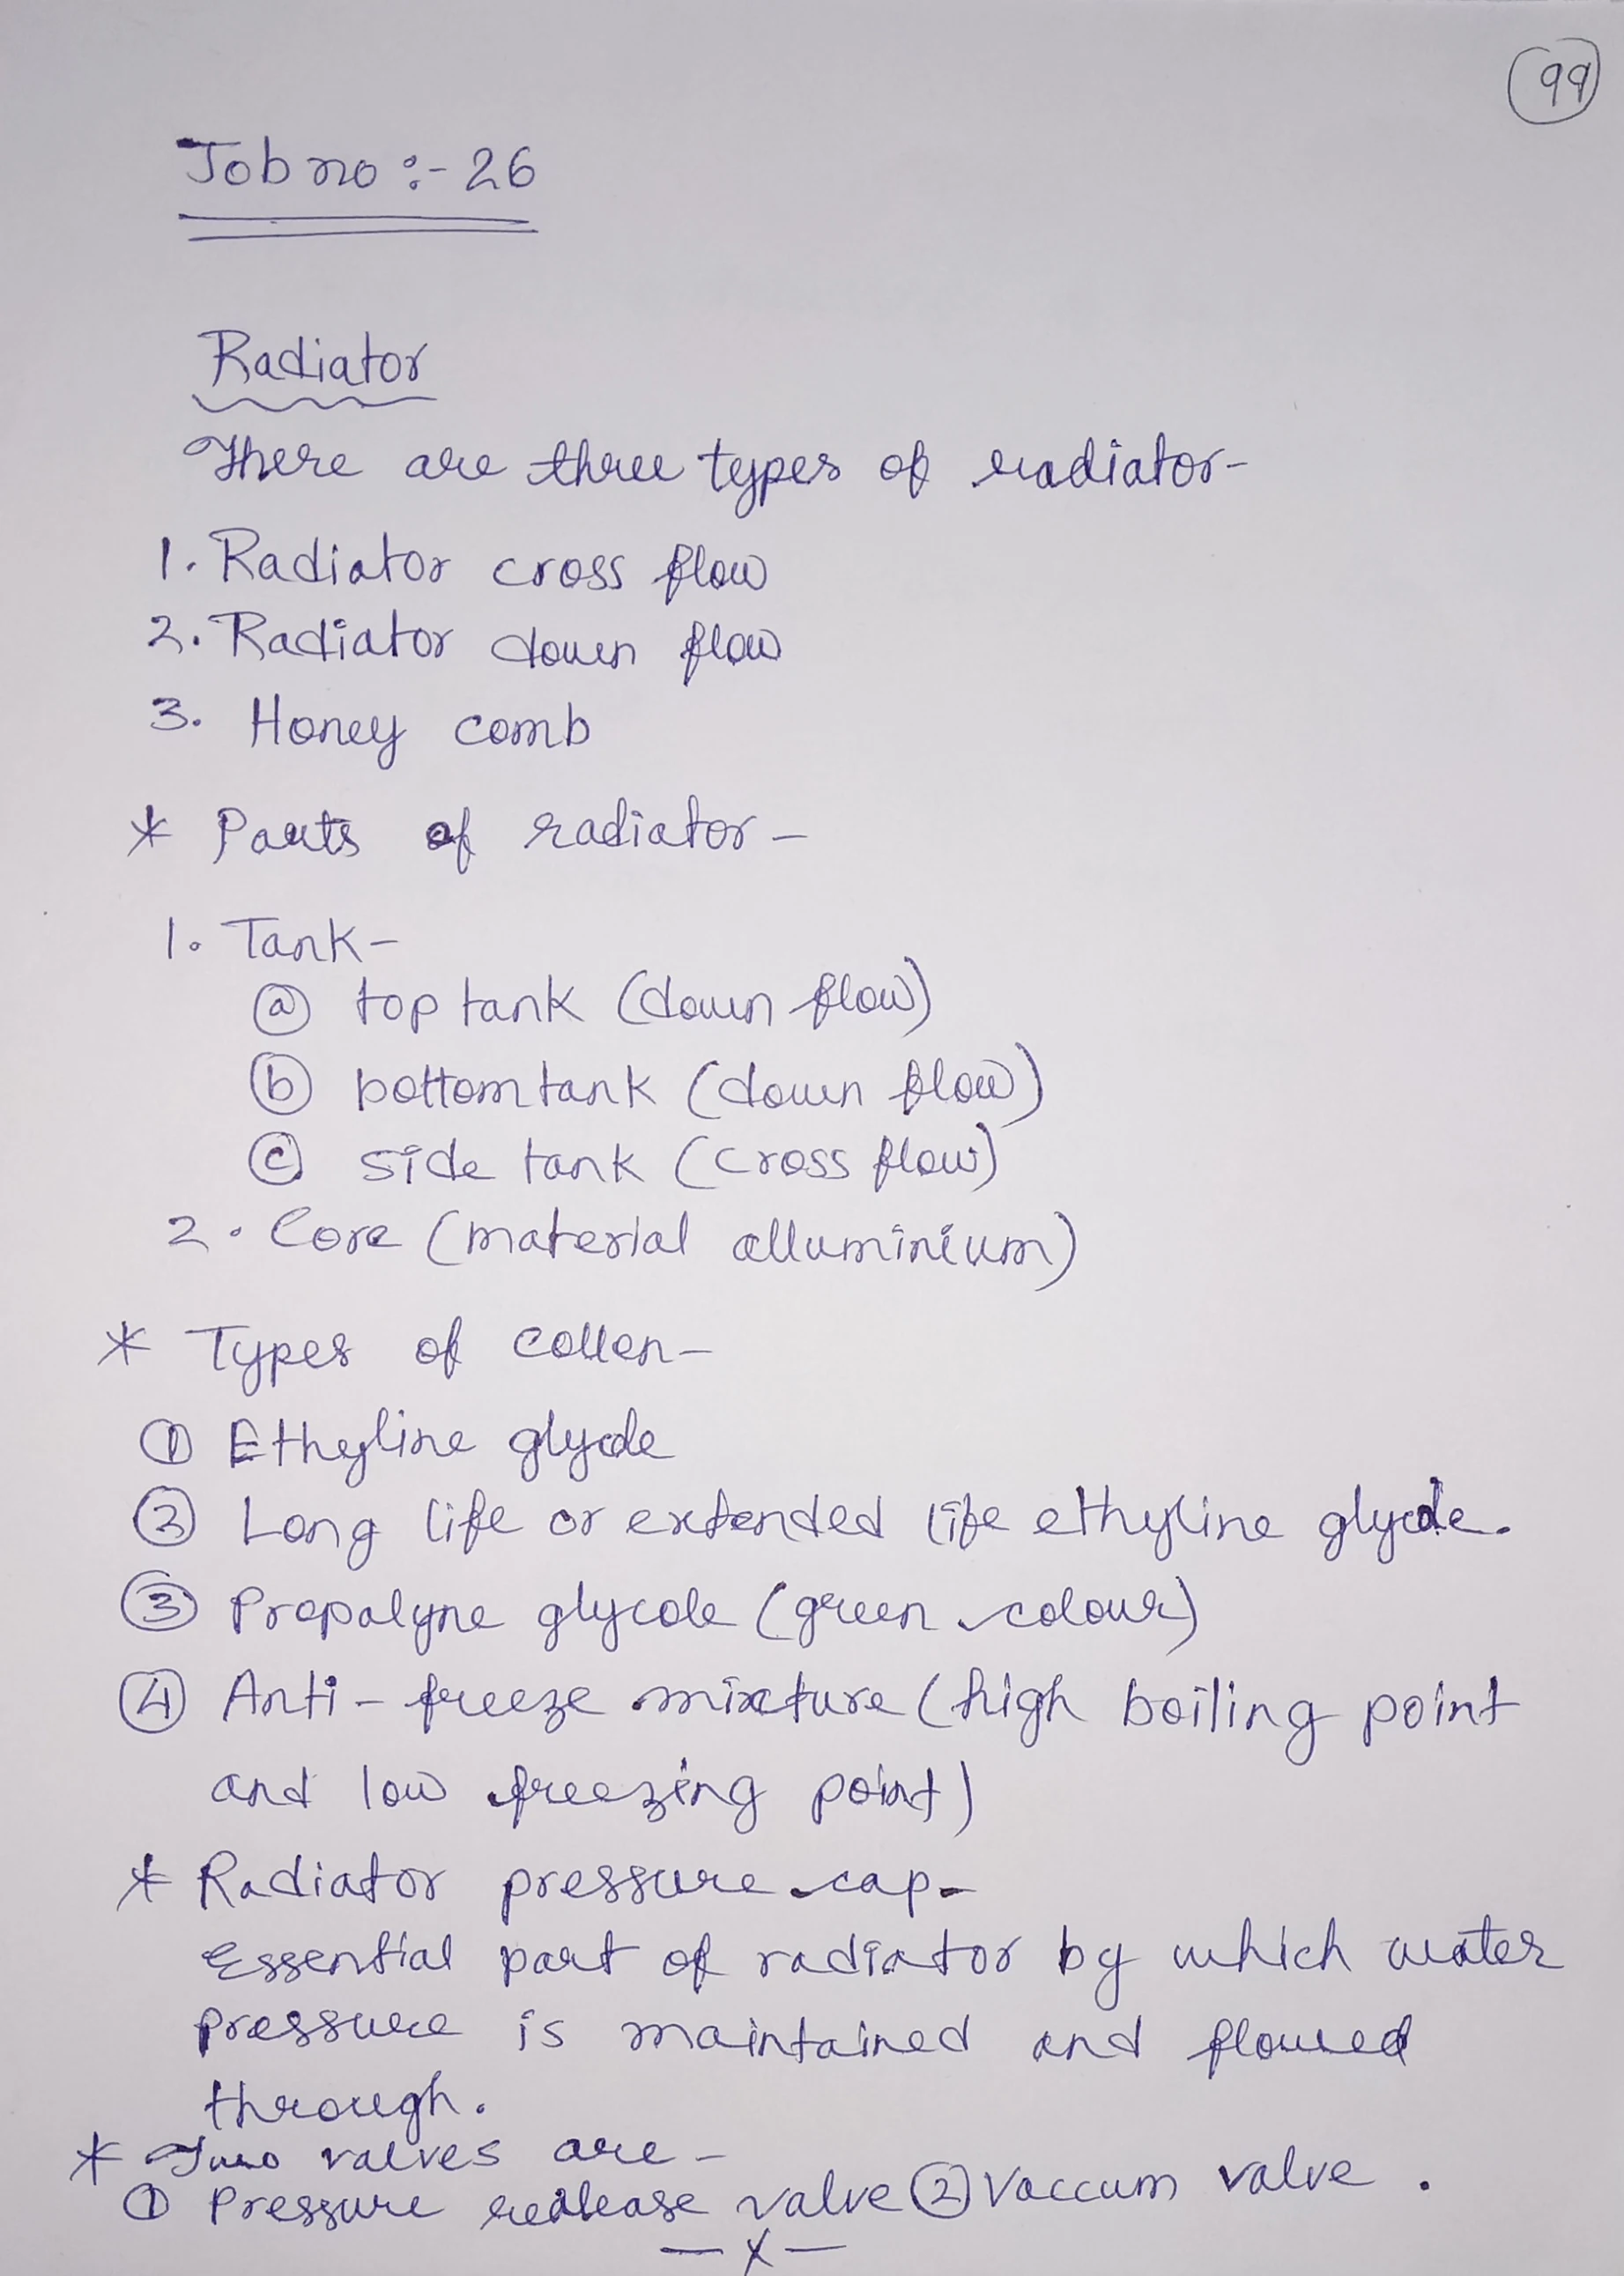 99
Job no :- 26
Radiator
There are three types of radiator-
1. Radiator cross flow
2. Radiator down flow
3. Honey comb
* Parts of radiator -
1. Tank-
ⓐ top tank (down flow)
ⓑ bottom tank (down flow)
ⓒ side tank (cross flow)
2. Core (material alluminium)
* Types of collen-
① Ethyline glycole
② Long life or extended life ethyline glycole.
③ Propalyne glycole (green colour)
④ Anti-freeze mixture (high boiling point
and low freezing point)
* Radiator pressure cap-
Essential part of radiator by which water
pressure is maintained and flowed
through.
* Two valves are -
① Pressure realease valve ② Vaccum valve .
— x —